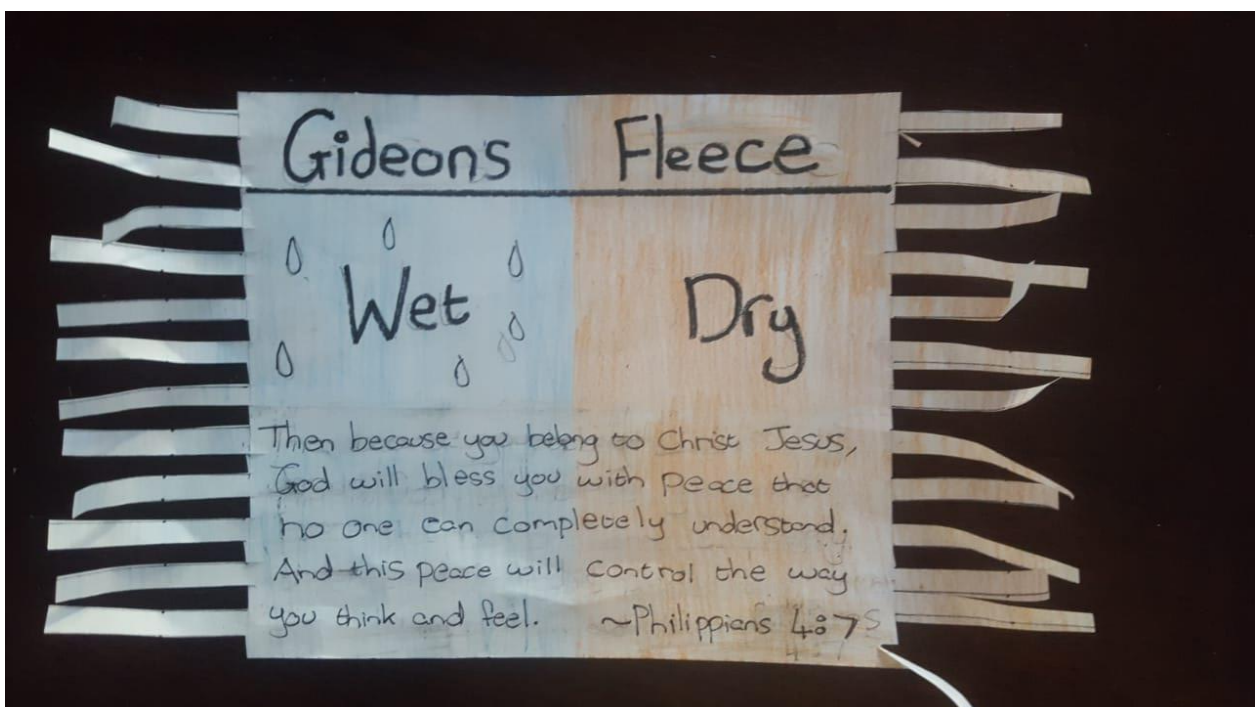 Gideons Fleece
Wet Dry
Then because you belong to Christ Jesus,
God will bless you with peace that
no one can completely understand.
And this peace will control the way
you think and feel. ~Philippians 4:7